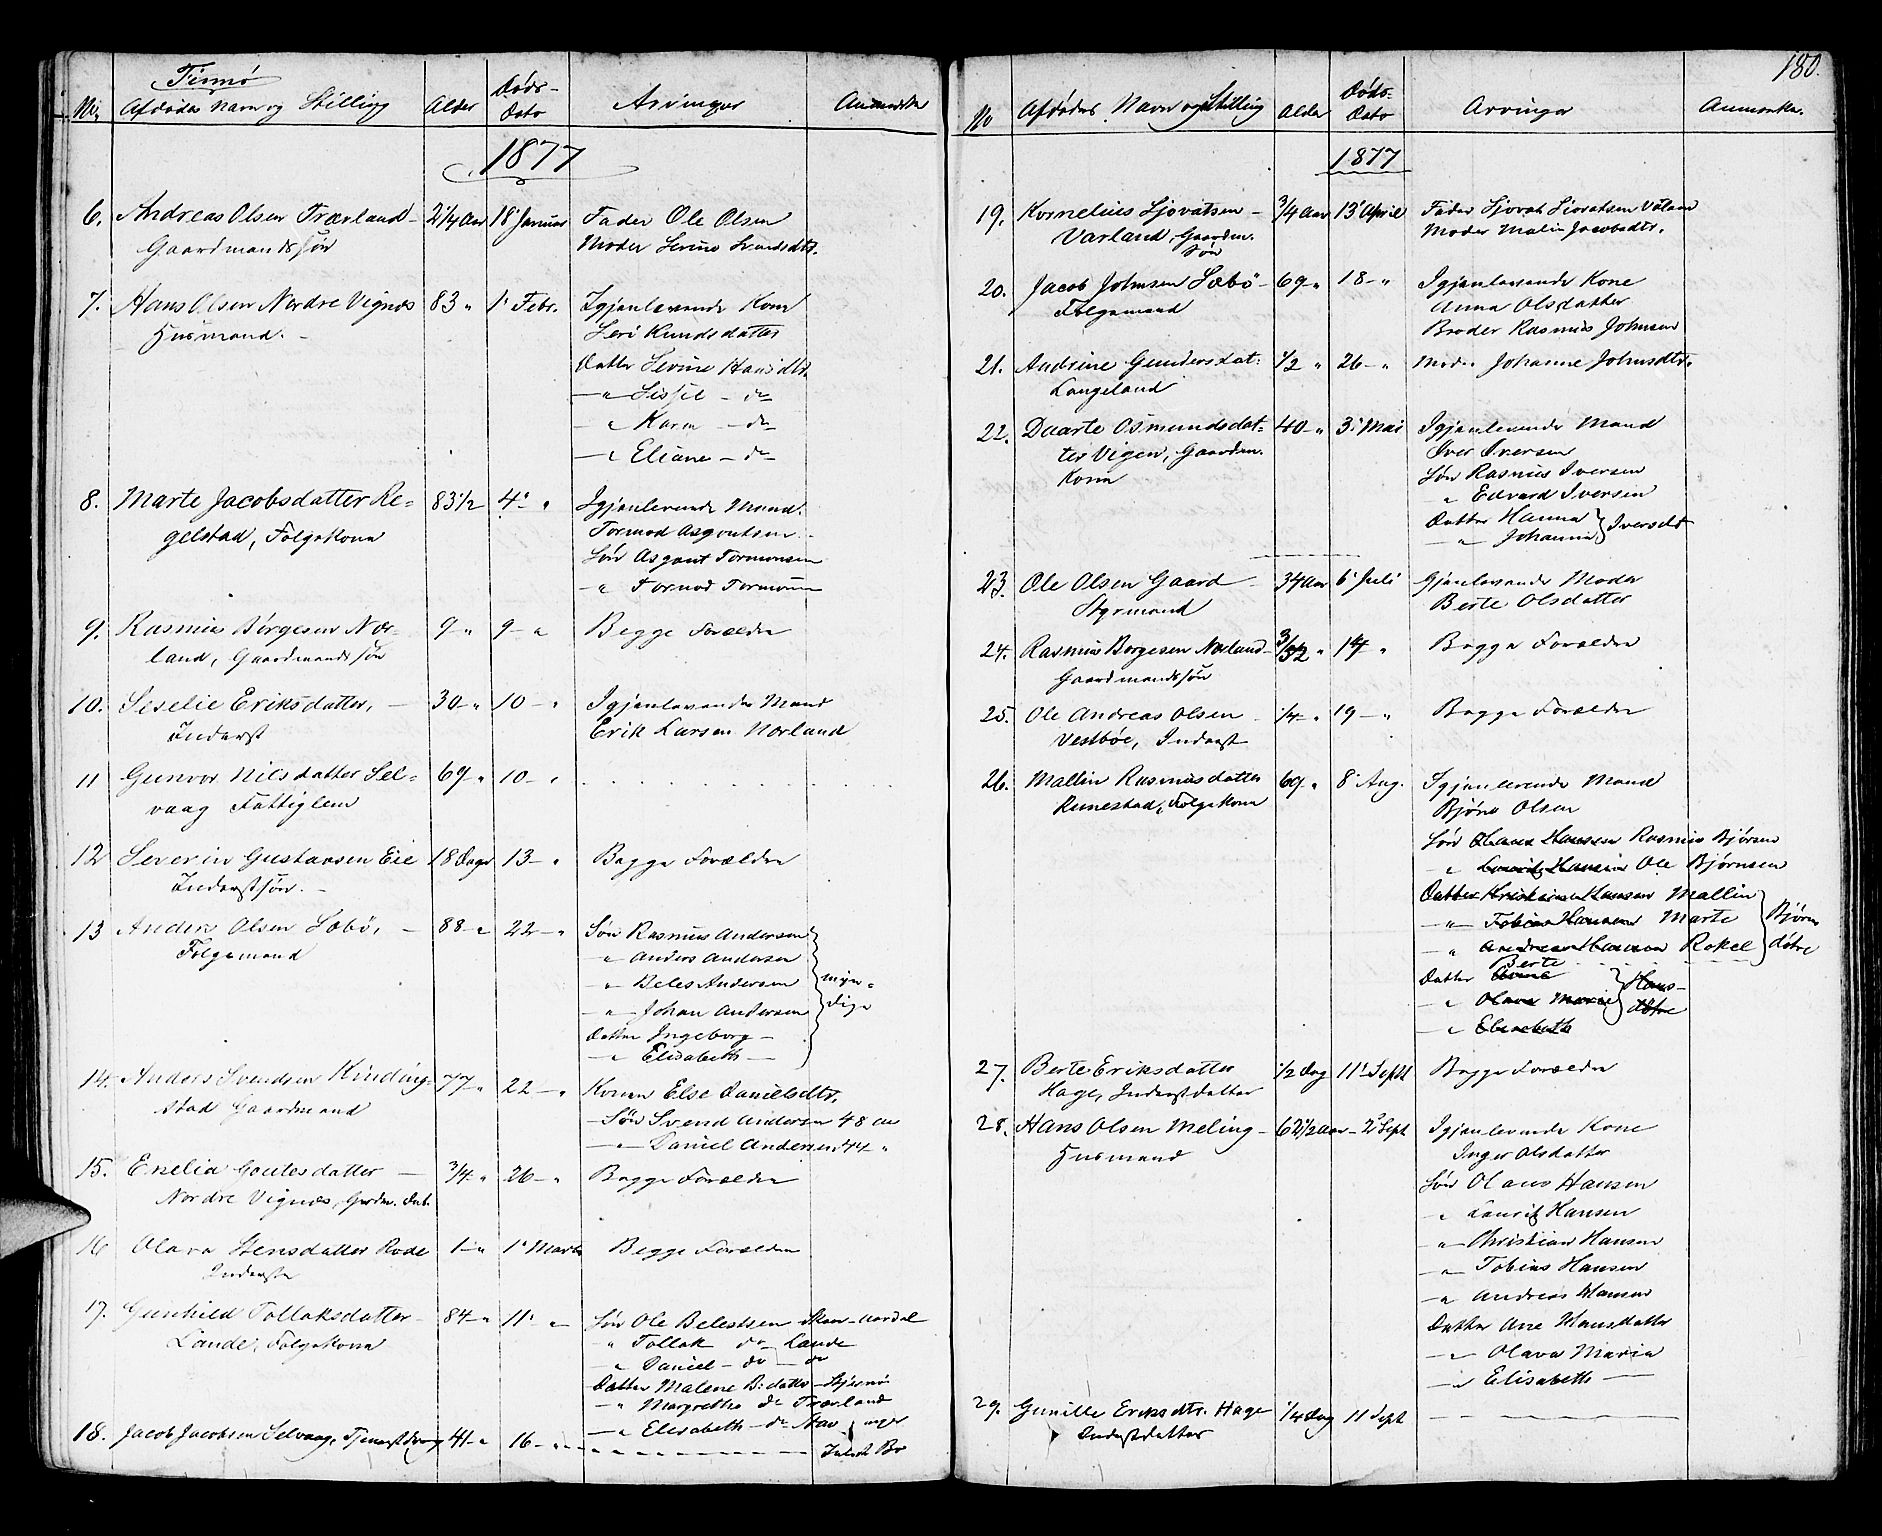 Finnö
No Afdødes Navn og Stilling Alder Døds-Dato Arvinger Anmærkn
1877
6. Andreas Olsen Træeland 2 1/4 Aar 18' Januar Fader Ole Olsen
Gaardmandssøn Moder Serine
7. Hans Olsen Nordre Vignæs 83 " 1' Febr. Igjenlevende Kone
Husmand. Seri Knudsdatter
Datter Serine Hansdtr.
—"— Sissel — do
—"— Karen — do
—"— Eliane — do
8. Marte Jacobsdatter Re- 83 1/2 4' " Igjenlevende Mand.
gelstad, Følgekone Tormod Asgautsen
Søn Asgaut Tormodsen
—"— Tormod Tormodsen
9. Rasmus Børgesen Nor- 9 " 9 — " Begge Forældre
land, Gaardmandssøn
10. Seselie Eriksdatter, 30 — " 10 — " Igjenlevende Mand
Inderst Erik Larsen Norland
11 Gunvor Nilsdatter Sel- 69 " 10 — "
vaag Fattiglem
12 Severin Gustavsen Eie 18 Dage 13 — " Begge Forældre
Inderstsøn.
13 Anders Olsen Læbø, 88 — " 22 — " Søn Rasmus Andersen
Følgemand —"— Anders Andersen
—"— Beles Andersen myn-
—"— Johan Andersen dige
Datter Ingeborg —
—"— Elisabeth —
14. Anders Svendsen Kinding- 77 — " 22 — " Konen Else Danielsdtr.
stad Gaardmand Søn Svend Andersen 48 Aar
—"— Daniel Andersen 44 "
15. Enelia Goutesdatter 3/4 — " 26 — " Begge Forældre
Nordre Vignæs, Gardm. Dat.
16 Olava Stensdatter Rode 1 — " 1' Marts Begge Forældre
Inderste
17. Gunhild Tollaksdatter 84 — " 11' — Søn Ole Belestsen
Lande, Følgekone " Tollak do Lande
—"— Daniel — do — do
Datter Malene B:datter
—"— Margrethe do Træland
—"— Elisabeth — do Stavanger
18. Jacob Jacobsen Selvaag, Tjenestdreng 41 — " 16 — " Intet Bo
180.
No Afdødes Navn og Stilling Alder Døds-Dato Arvinger Anmærkn.
1877
19. Kornelius Sjovatsen 3/4 Aar 13' April Fader Sjovat Siovatsen
Varland, Gaardm. Moder Malin Jacobsdtr.
Søn
20. Jacob Johnsen Læbø 69 — " 18 — " Igjenlevende Kone
Følgemand Anna Olsdatter
Broder Rasmus Johnsen
21. Andrine Gundersdat: 1/2 " 26 — " Moder Johanne Johnsdtr.
Langeland
22. Daarte Osmundsdat- 40 — " 3' Mai Igjenlevende Mand
ter Vigen, Gaardm. Iver Iversen
Kone Søn Rasmus Iversen
" Edvard Iversen
Datter Hanna Iversdtr
—"— Johanna
23. Ole Olsen Gaard 34 Aar 6' Juli Gjenlevende Moder
Styrmand Berte Olsdatter
24. Rasmus Borgesen Norland 3/52 " 14 " Begge Forældre
Gaardmandssøn
25. Ole Andreas Olsen 1/4 — " 19 — " Begge Forældre
Vestbøe, Inderst
26. Mallin Rasmusdatter 69 — " 8' Aug. Igjenlevende Mand
Runestad, Følgekone Bjørn Olsen
Søn Olaus Hansen Rasmus Bjørnsen
—"— Lauritz Hansen Ole Bjørnsen
Datter Kristian Hansen Mallin Bjørns
—"— Tobias Hansen Marte døtre
—"— Andreas Hansen Rakel
Berte
Datter Anne Hans-
—"— Olava Marie døtre
—"— Elisabeth
27. Berte Eriksdatter 1/2 Dag 11' Sept Begge Forældre
Hage, Inderstdatter
28. Hans Olsen Meling 62 1/2 Aar 2' Sept Igjenlevende Kone
Husmand Inger Olsdatter
Søn Olaus Hansen
—"— Lauritz Hansen
—"— Christian Hansen
—"— Tobias Hansen
—"— Andreas Hansen
Datter Ane Hansdatter
—"— Olava Maria
—"— Elisabeth —
29. Gunille Eriksdtr. Hage 1/4 Dag 11 Sept
Inderstdatter